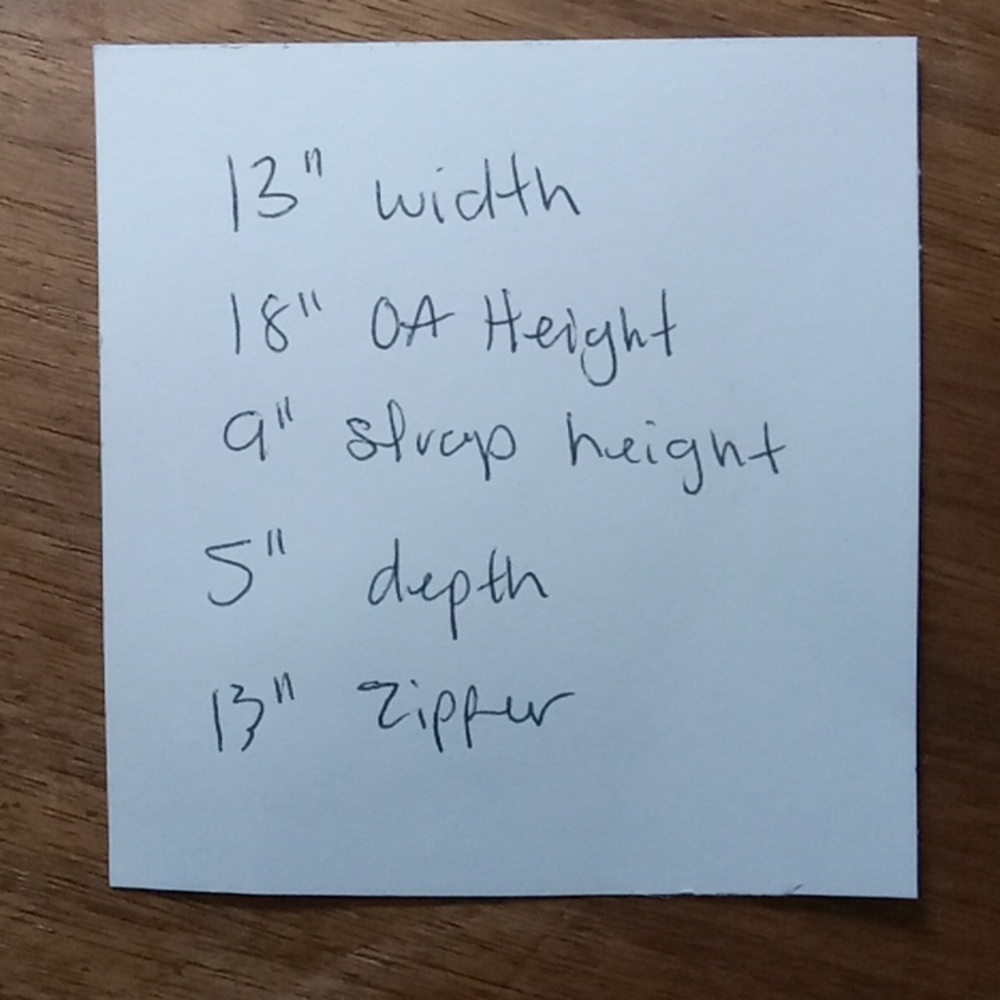 13" width
18" OA Height
9" strap height
5" depth
13" Zipper